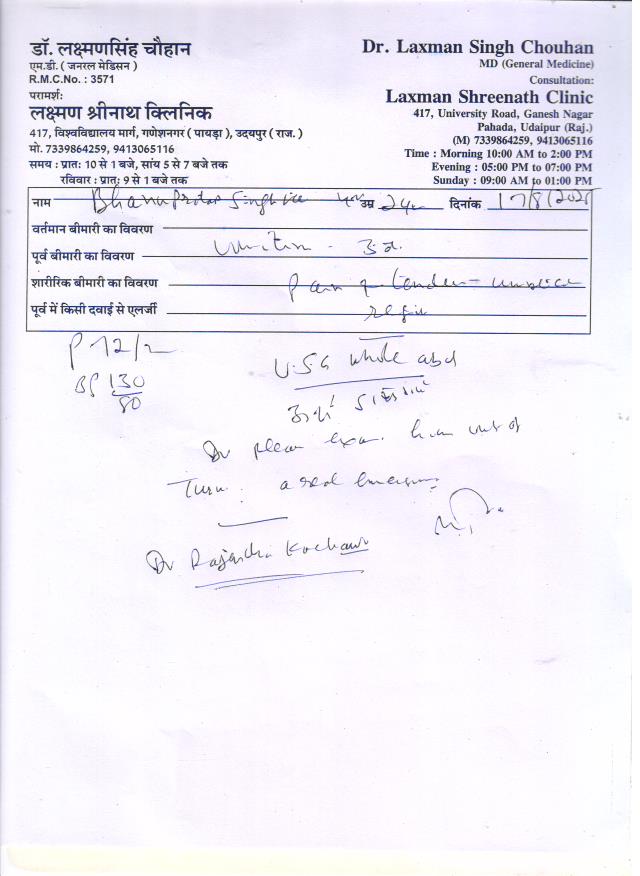 डॉ. लक्ष्मणसिंह चौहान
एम.डी. ( जनरल मेडिसन )
R.M.C.No. : 3571
परामर्श:
लक्ष्मण श्रीनाथ क्लिनिक
417, विश्वविद्यालय मार्ग, गणेशनगर ( पायड़ा ), उदयपुर ( राज. )
मो. 7339864259, 9413065116
समय : प्रातः 10 से 1 बजे, सांय 5 से 7 बजे तक
रविवार : प्रातः 9 से 1 बजे तक
Dr. Laxman Singh Chouhan
MD (General Medicine)
Consultation:
Laxman Shreenath Clinic
417, University Road, Ganesh Nagar
Pahada, Udaipur (Raj.)
(M) 7339864259, 9413065116
Time : Morning 10:00 AM to 2:00 PM
Evening : 05:00 PM to 07:00 PM
Sunday : 09:00 AM to 01:00 PM
नाम Bhanu Pratap Singh उम्र 24 दिनांक 17/8/
वर्तमान बीमारी का विवरण
पूर्व बीमारी का विवरण
शारीरिक बीमारी का विवरण Pain
पूर्व में किसी दवाई से एलर्जी
P 72/
BP 130/80
U.S.G whole abd
Dr please him out of
Turn. a real
Dr Rajendra Kachawa